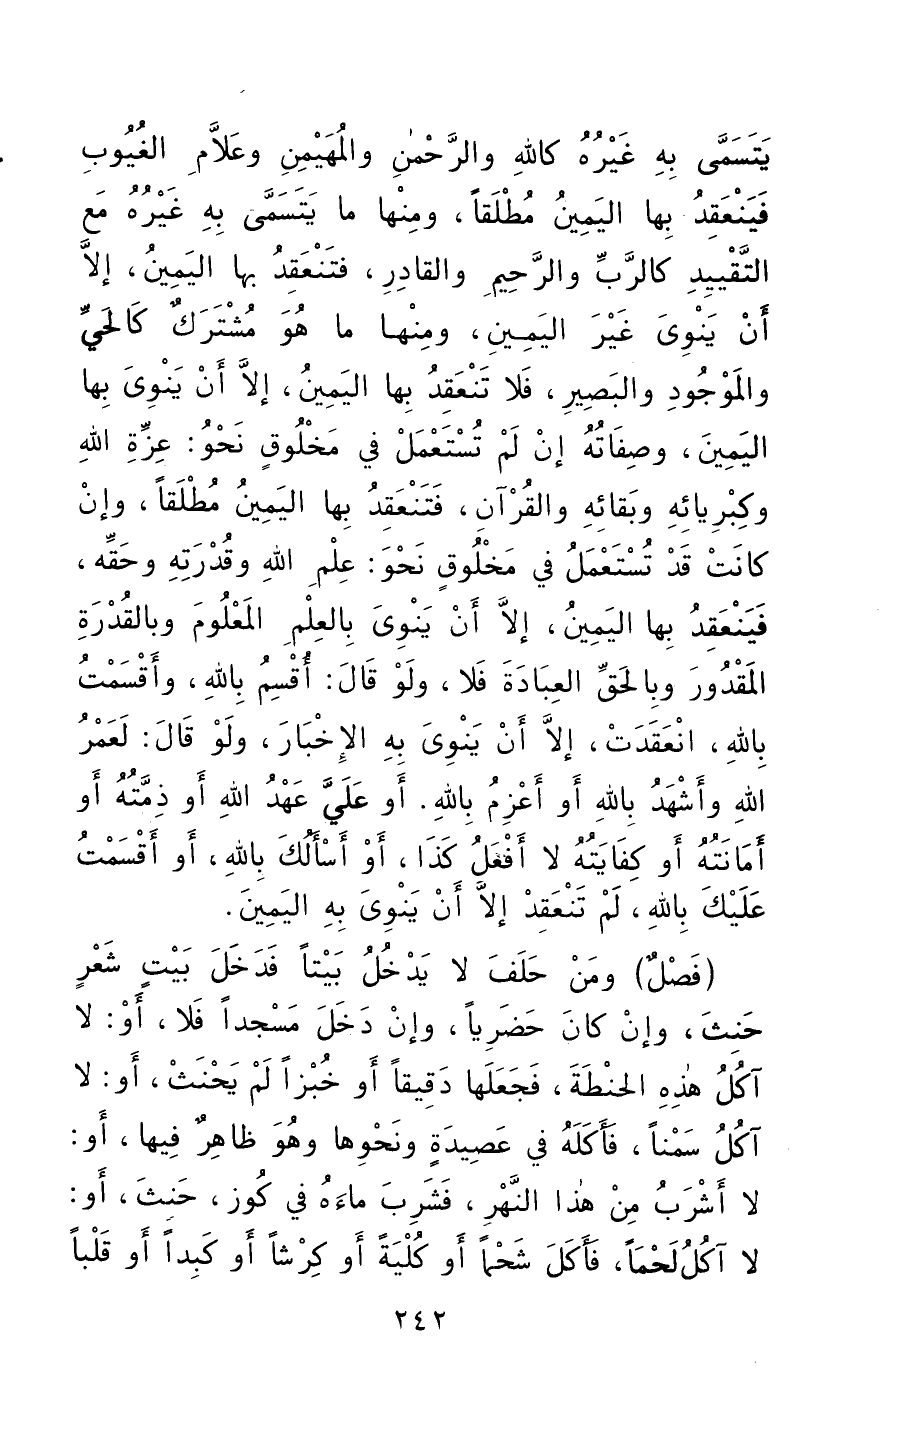 يَتَسَمَّى بِهِ غَيْرُهُ كاللهِ والرَّحْمٰنِ والمُهَيْمِنِ وعَلاَّمِ الغُيُوبِ
فَيَنْعَقِدُ بها اليَمِينُ مُطْلَقاً، ومِنْها ما يَتَسَمَّى بِهِ غَيْرُهُ مَع
التَّقْيِيدِ كالرَّبِّ والرَّحِيمِ والقادِرِ، فتَنْعَقِدُ بها اليَمِينُ، إلاَّ
أَنْ يَنْوِيَ غَيْرَ اليَمِينِ، ومِنْها ما هُوَ مُشْتَرَكٌ كَالحَيِّ
والمَوْجُودِ والبَصِيرِ، فَلا تَنْعَقِدُ بها اليَمِينُ، إلاَّ أَنْ يَنْوِيَ بِها
اليَمِينَ، وصِفَاتُهُ إنْ لَمْ تُسْتَعْمَلْ في مَخْلُوقٍ نَحْوُ: عِزَّةِ اللهِ
وكِبْرِيائِهِ وبَقائِهِ والقُرْآنِ، فَتَنْعَقِدُ بها اليَمِينُ مُطْلَقاً، وإنْ
كانَتْ قَدْ تُسْتَعْمَلُ في مَخْلُوقٍ نَحْوَ: عِلْمِ اللهِ وقُدْرَتِهِ وحَقِّه،
فَيَنْعَقِدُ بها اليَمِينُ، إلاَّ أَنْ يَنْوِيَ بِالعِلْمِ المَعْلُومَ وبالقُدْرَةِ
المَقْدُورَ وبِالحَقِّ العِبَادَةَ فَلا، ولَوْ قَالَ: أُقْسِمُ بِاللهِ، وأَقْسَمْتُ
بِاللهِ، انْعَقَدَتْ، إلاَّ أَنْ يَنْوِيَ بِهِ الإخْبَارَ، ولَوْ قَالَ: لَعَمْرُ
اللهِ وأَشْهَدُ بِاللهِ أو أَعْزِمُ بِاللهِ. أو عَلَيَّ عَهْدُ اللهِ أو ذِمَّتُهُ أو
أَمَانَتُهُ أو كِفَايَتُهُ لا أَفْعَلُ كَذَا، أَوْ أَسْأَلُكَ بِاللهِ، أو أَقْسَمْتُ
عَلَيْكَ بِاللهِ، لَمْ تَنْعَقِدْ إلاَّ أَنْ يَنْوِيَ بِهِ اليَمِينَ.
(فَصْلٌ) ومَنْ حَلَفَ لا يَدْخُلُ بَيْتاً فَدَخَلَ بَيْتٍ شَعْرٍ
حَنِثَ، وإنْ كانَ حَضَرِياً، وإنْ دَخَلَ مَسْجداً فَلا، أَوْ: لا
آكُلُ هٰذِهِ الحنْطَةَ، فَجَعَلَها دَقِيقاً أو خُبْزاً لَمْ يَحْنَثْ، أو: لا
آكُلُ سَمْناً، فَأَكَلَهُ في عَصِيدَةٍ ونَحْوِها وهُوَ ظاهِرٌ فِيها، أو:
لا أَشْرَبُ مِنْ هٰذا النَّهْرِ، فَشَرِبَ ماءَهُ في كُوزٍ، حَنِثَ، أو:
لا آكُلُ لَحْمَاً، فأَكَلَ شَحْماً أو كُلْيَةً أو كِرْشاً أو كَبِداً أو قَلْباً
٢٤٢